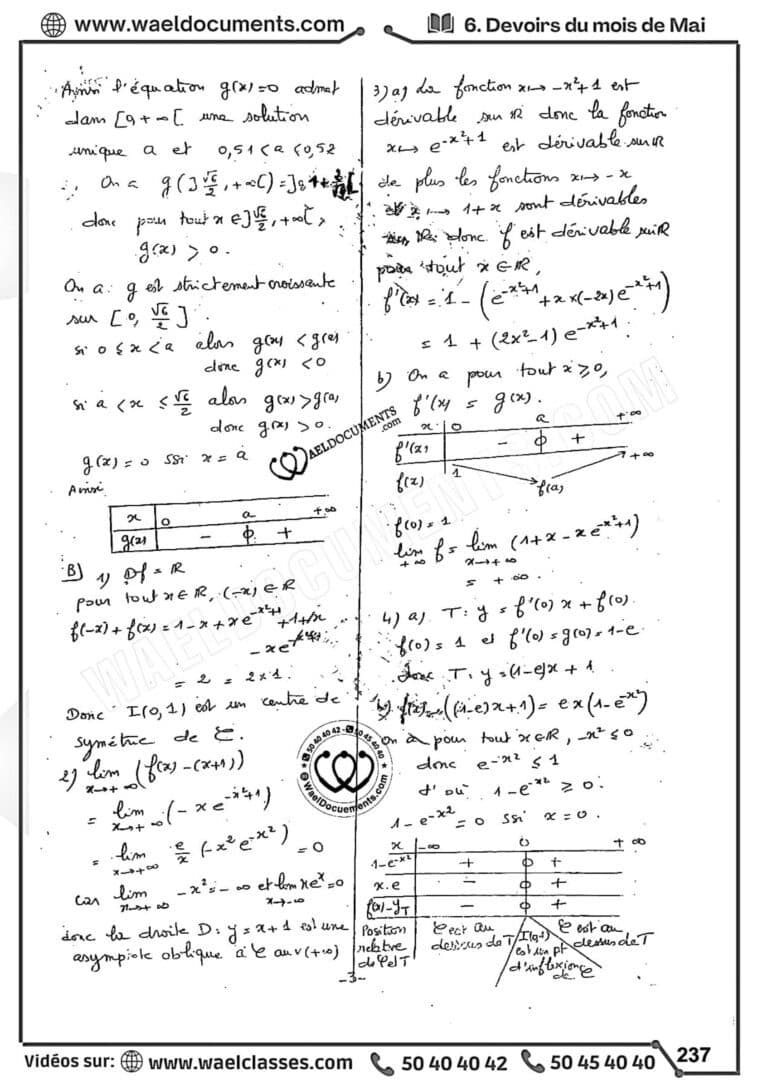 www.waeldocuments.com
6. Devoirs du mois de Mai
Ainsi l'équation g(x)=0 admet
dans [0,+∞[ une solution
unique a et 0,51<a<0,52
On a g(]√6/2,+∞[)=]
donc pour tout x∈]√6/2,+∞[,
g(x)>0.
On a g est strictement croissante
sur [0, √6/2]
si 0≤x<a alors g(x)<g(a)
donc g(x)<0
si a<x≤√6/2 alors g(x)>g(a)
donc g(x)>0.
g(x)=0 ssi x=a
Ainsi
x 0 a +∞
g(x) - 0 +
B) 1) Df=ℝ
pour tout x∈ℝ, (-x)∈ℝ
f(-x)+f(x)=1-x+xe^{-x²+1}+1+x
-xe^{-x²+1}
=2=2×1.
Donc I(0,1) est un centre de
symétrie de C.
2) lim x→+∞ (f(x)-(x+1))
= lim x→+∞ (-xe^{-x²+1})
= lim x→+∞ e/x (-x²e^{-x²}) =0
Car lim x→+∞ -x²=-∞ et lim x→-∞ xe^x=0
donc la droite D: y=x+1 est une
asymptote oblique à C au v(+∞)
3) a) La fonction x↦-x²+1 est
dérivable sur ℝ donc la fonction
x↦e^{-x²+1} est dérivable sur ℝ
de plus les fonctions x↦-x
et x↦1+x sont dérivables
sur ℝ donc f est dérivable sur ℝ
pour tout x∈ℝ,
f'(x)=1-(e^{-x²+1}+x×(-2x)e^{-x²+1})
=1+(2x²-1)e^{-x²+1}.
b) On a pour tout x≥0,
f'(x)=g(x).
x 0 a +∞
f'(x) - 0 +
f(x) 1 f(a) +∞
f(0)=1
lim +∞ f = lim x→+∞ (1+x-xe^{-x²+1})
=+∞.
4) a) T: y=f'(0)x+f(0)
f(0)=1 et f'(0)=g(0)=1-e
donc T: y=(1-e)x+1
b) f(x)-((1-e)x+1)=ex(1-e^{-x²})
On a pour tout x∈ℝ, -x²≤0
donc e^{-x²}≤1
d'où 1-e^{-x²}≥0.
1-e^{-x²}=0 ssi x=0.
x -∞ 0 +∞
1-e^{-x²} + 0 +
x.e - 0 +
f(x)-y_T - 0 +
Position relative de C et T
C est au dessous de T
I(0,1) est un pt d'inflexion de C
C est au dessus de T
-3-
WAELDOCUMENTS.com
50 40 40 42 - 50 45 40 40
WaelDocuements.com
WAELDOCUMENTS.COM
Vidéos sur: www.waelclasses.com 50 40 40 42 50 45 40 40
237